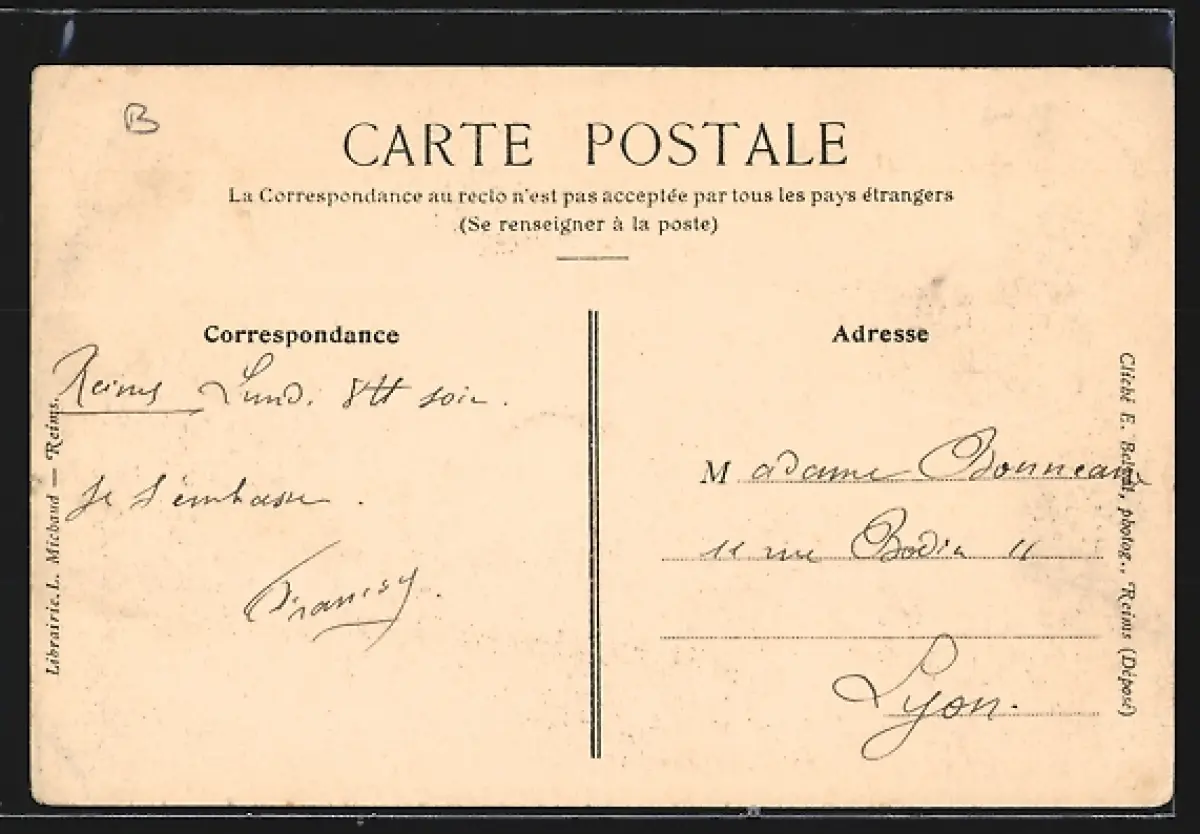 B
CARTE POSTALE
La Correspondance au recto n'est pas acceptée par tous les pays étrangers
(Se renseigner à la poste)
Correspondance
Reims Lundi 8H soir.
Je t'embrasse.
Francisy.
Librairie. L. Michaud — Reims.
Adresse
Madame Bonneau
11 rue Bodin 11
Lyon.
Cliché E. photog., Reims (Déposé)